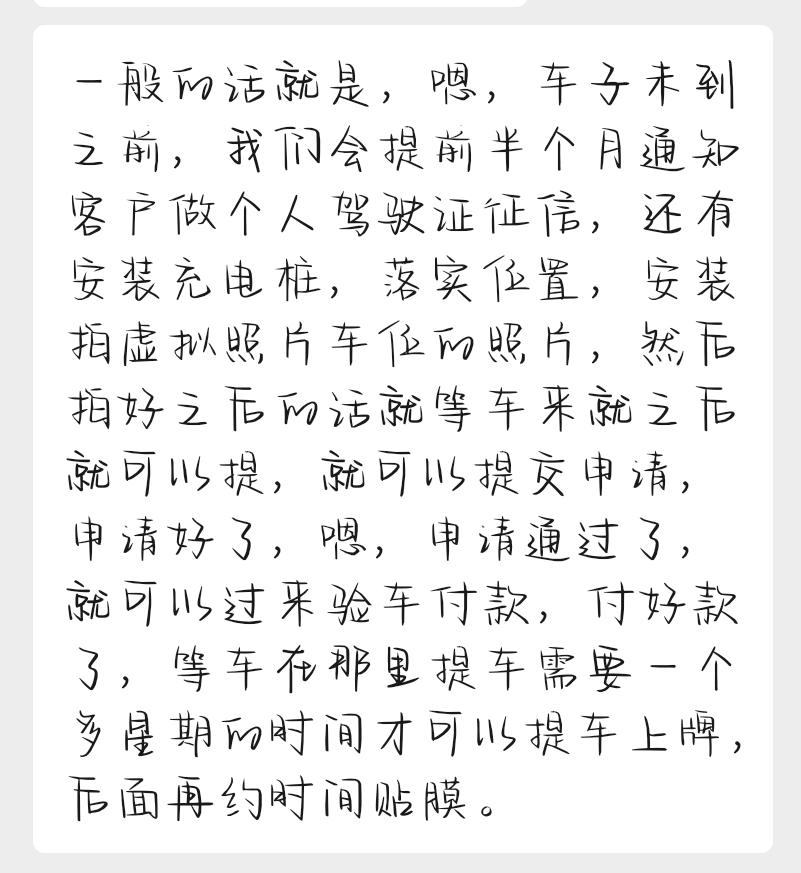 一般的话就是，嗯，车子未到
之前，我们会提前半个月通知
客户做个人驾驶证征信，还有
安装充电桩，落实位置，安装
拍虚拟照片车位的照片，然后
拍好之后的话就等车来就之后
就可以提，就可以提交申请，
申请好了，嗯，申请通过了，
就可以过来验车付款，付好款
了，等车在那里提车需要一个
多星期的时间才可以提车上牌，
后面再约时间贴膜。